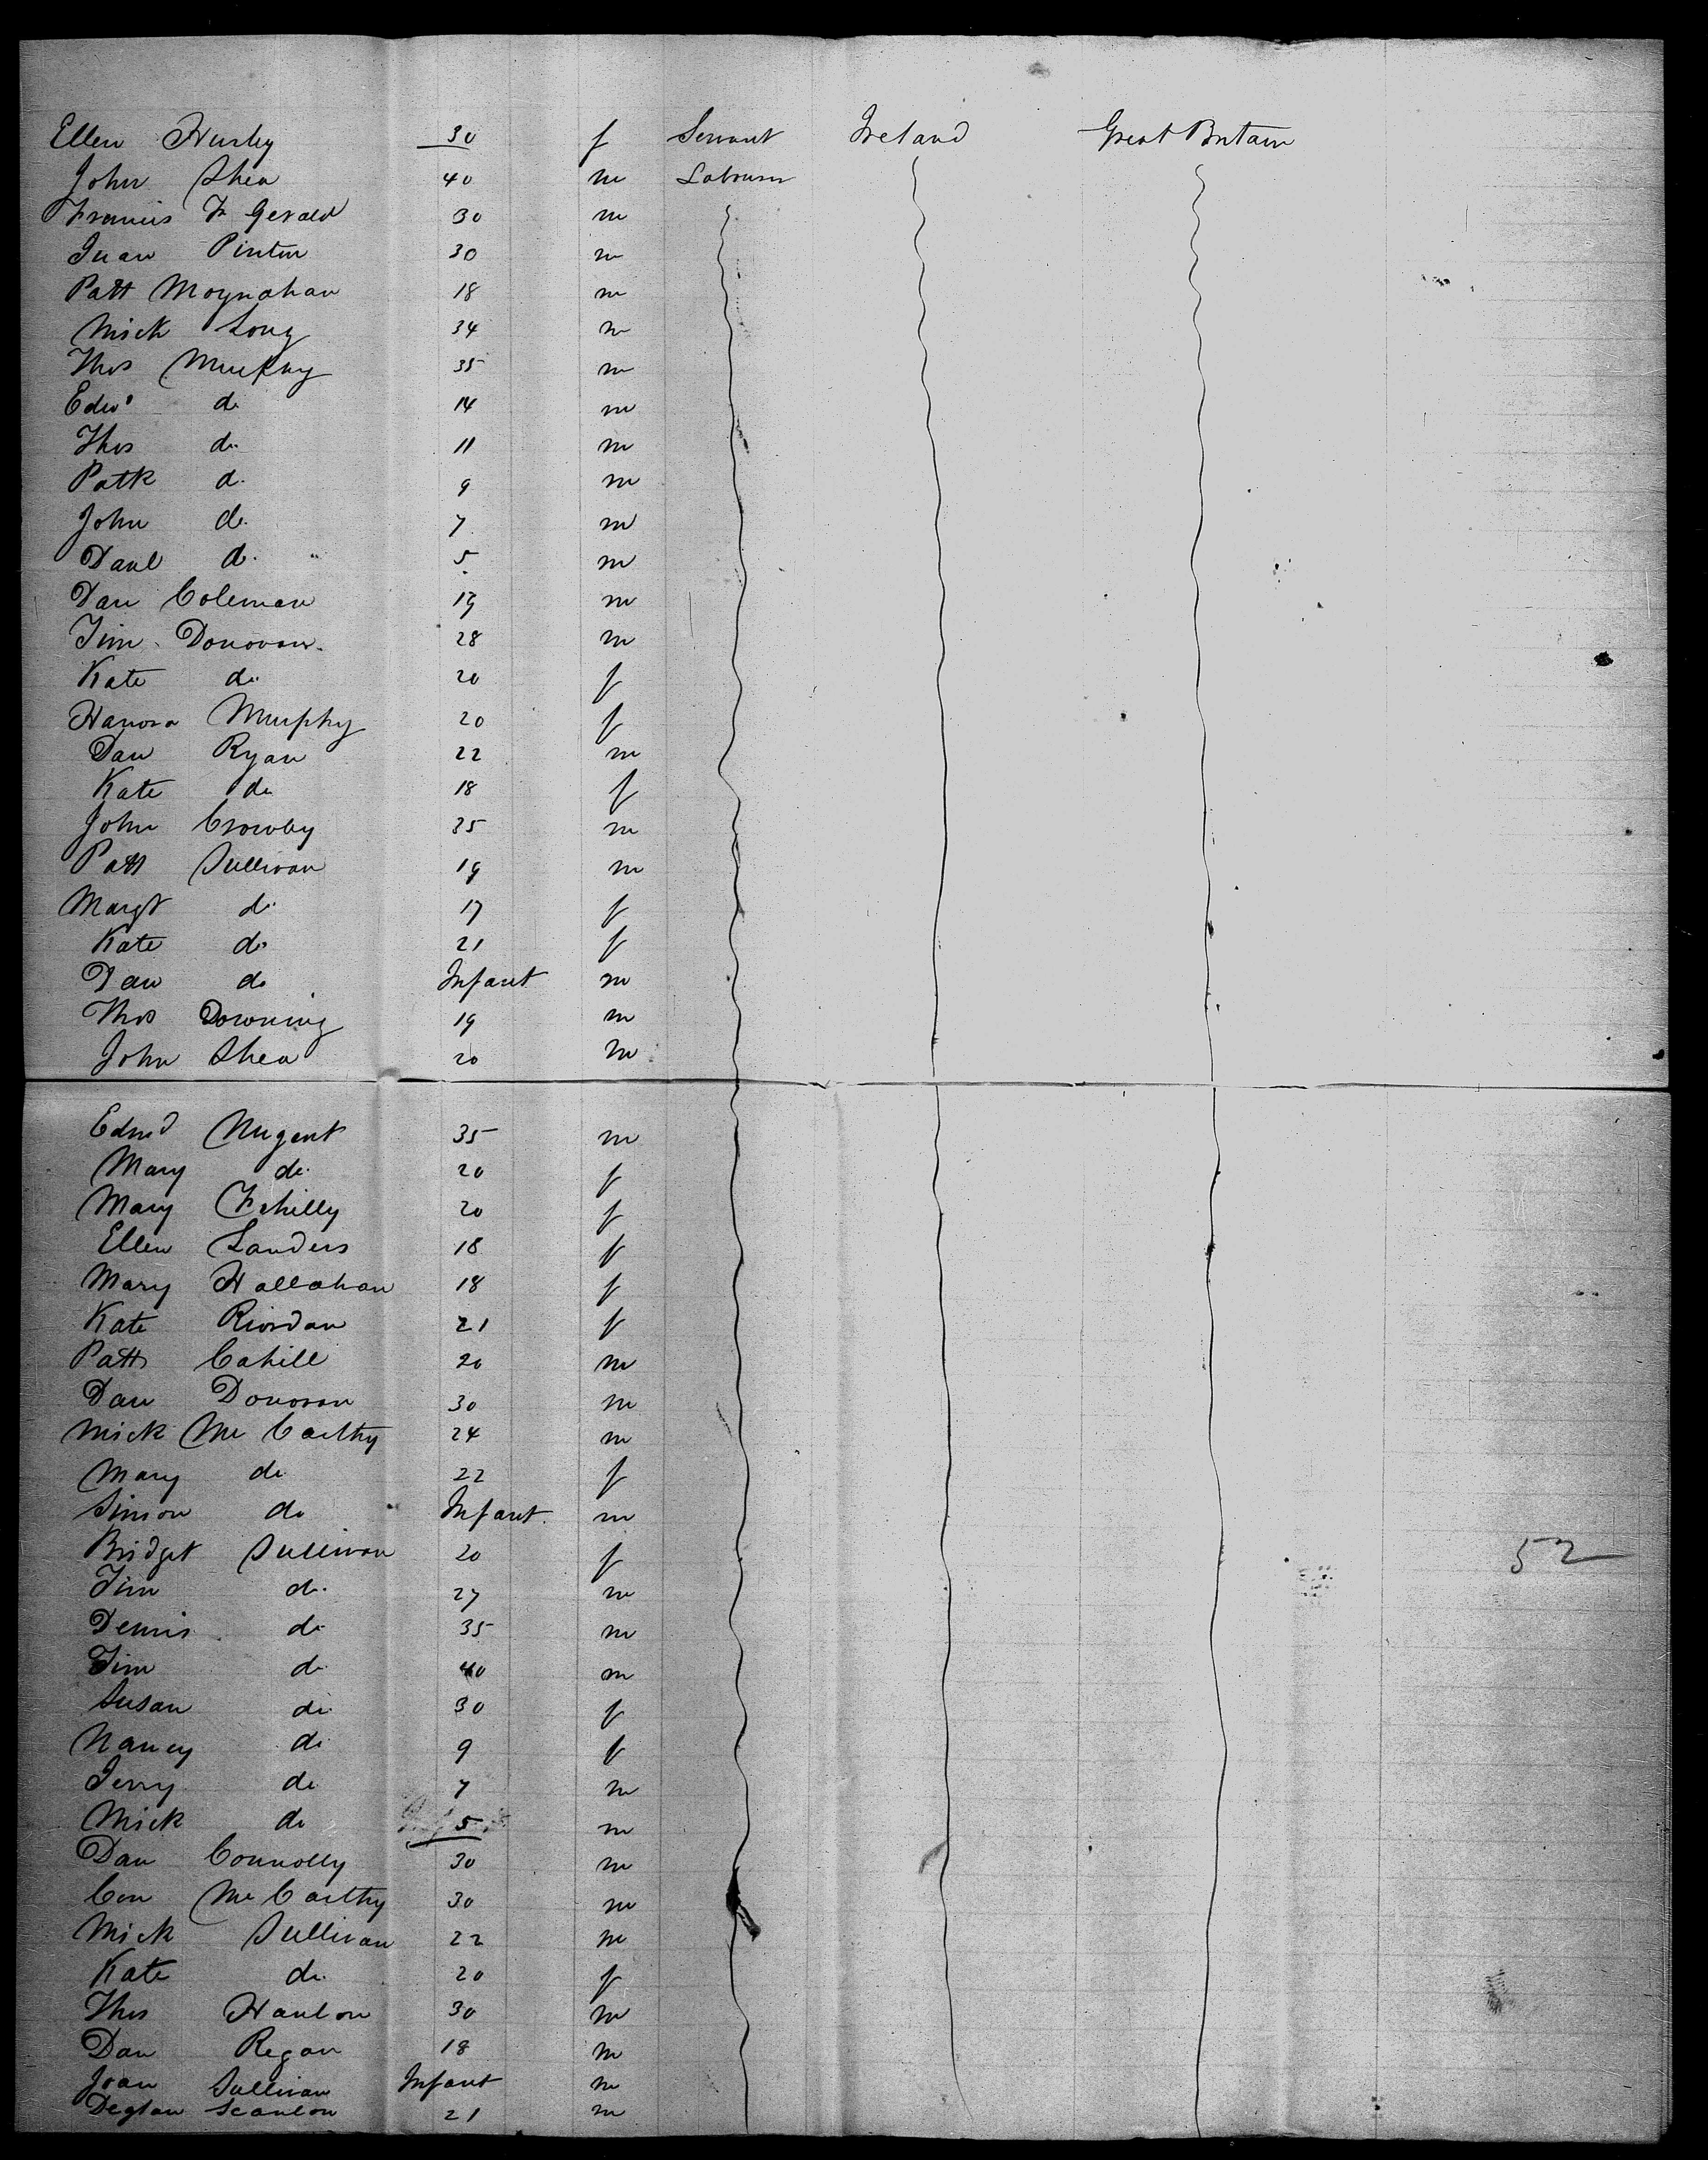 Ellen Hurley 30 f Servant Ireland Great Britain
John Shea 40 m Labourer
Francis Fz Gerald 30 m
Juan Pinten 30 m
Patt Moynahan 18 m
Mick Long 34 m
Thos Murphy 35 m
Edwd do 14 m
Thos do 11 m
Patk do 9 m
John do 7 m
Danl do 5 m
Dan Coleman 19 m
Tim Donovan 28 m
Kate do 20 f
Hanora Murphy 20 f
Dan Ryan 22 m
Kate do 18 f
John Crowley 35 m
Patt Sullivan 19 m
Margt do 17 f
Kate do 21 f
Dan do Infant m
Thos Downing 19 m
John Shea 20 m
Edmd Nugent 35 m
Mary do 20 f
Mary Fehilly 20 f
Ellen Landers 18 f
Mary Hallahan 18 f
Kate Riordan 21 f
Patt Cahill 20 m
Dan Donovan 30 m
Mick Mc Carthy 24 m
Mary do 22 f
Simon do Infant m
Bridget Sullivan 20 f 52
Tim do 27 m
Dennis do 35 m
Tim do 40 m
Susan do 30 f
Nancy do 9 f
Jerry do 7 m
Mick do 5 m
Dan Connolly 30 m
Con Mc Carthy 30 m
Mick Sullivan 22 m
Kate do 20 f
Thos Hanlon 30 m
Dan Regan 18 m
Joan Sullivan Infant m
Deglan Scanlon 21 m